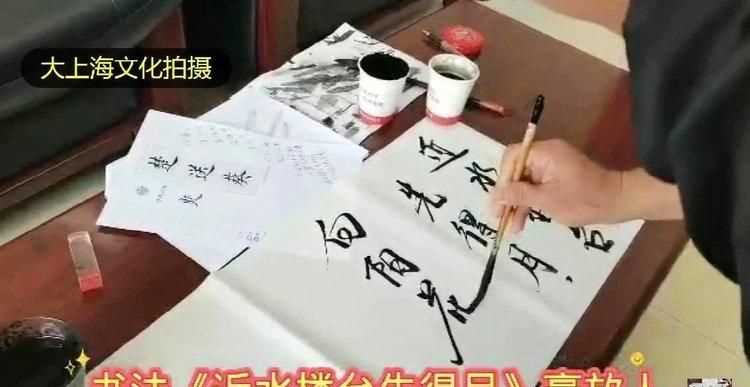 大上海文化拍摄
近水楼台
先得月,
向阳花
书法《近水楼台先得月》豪放!